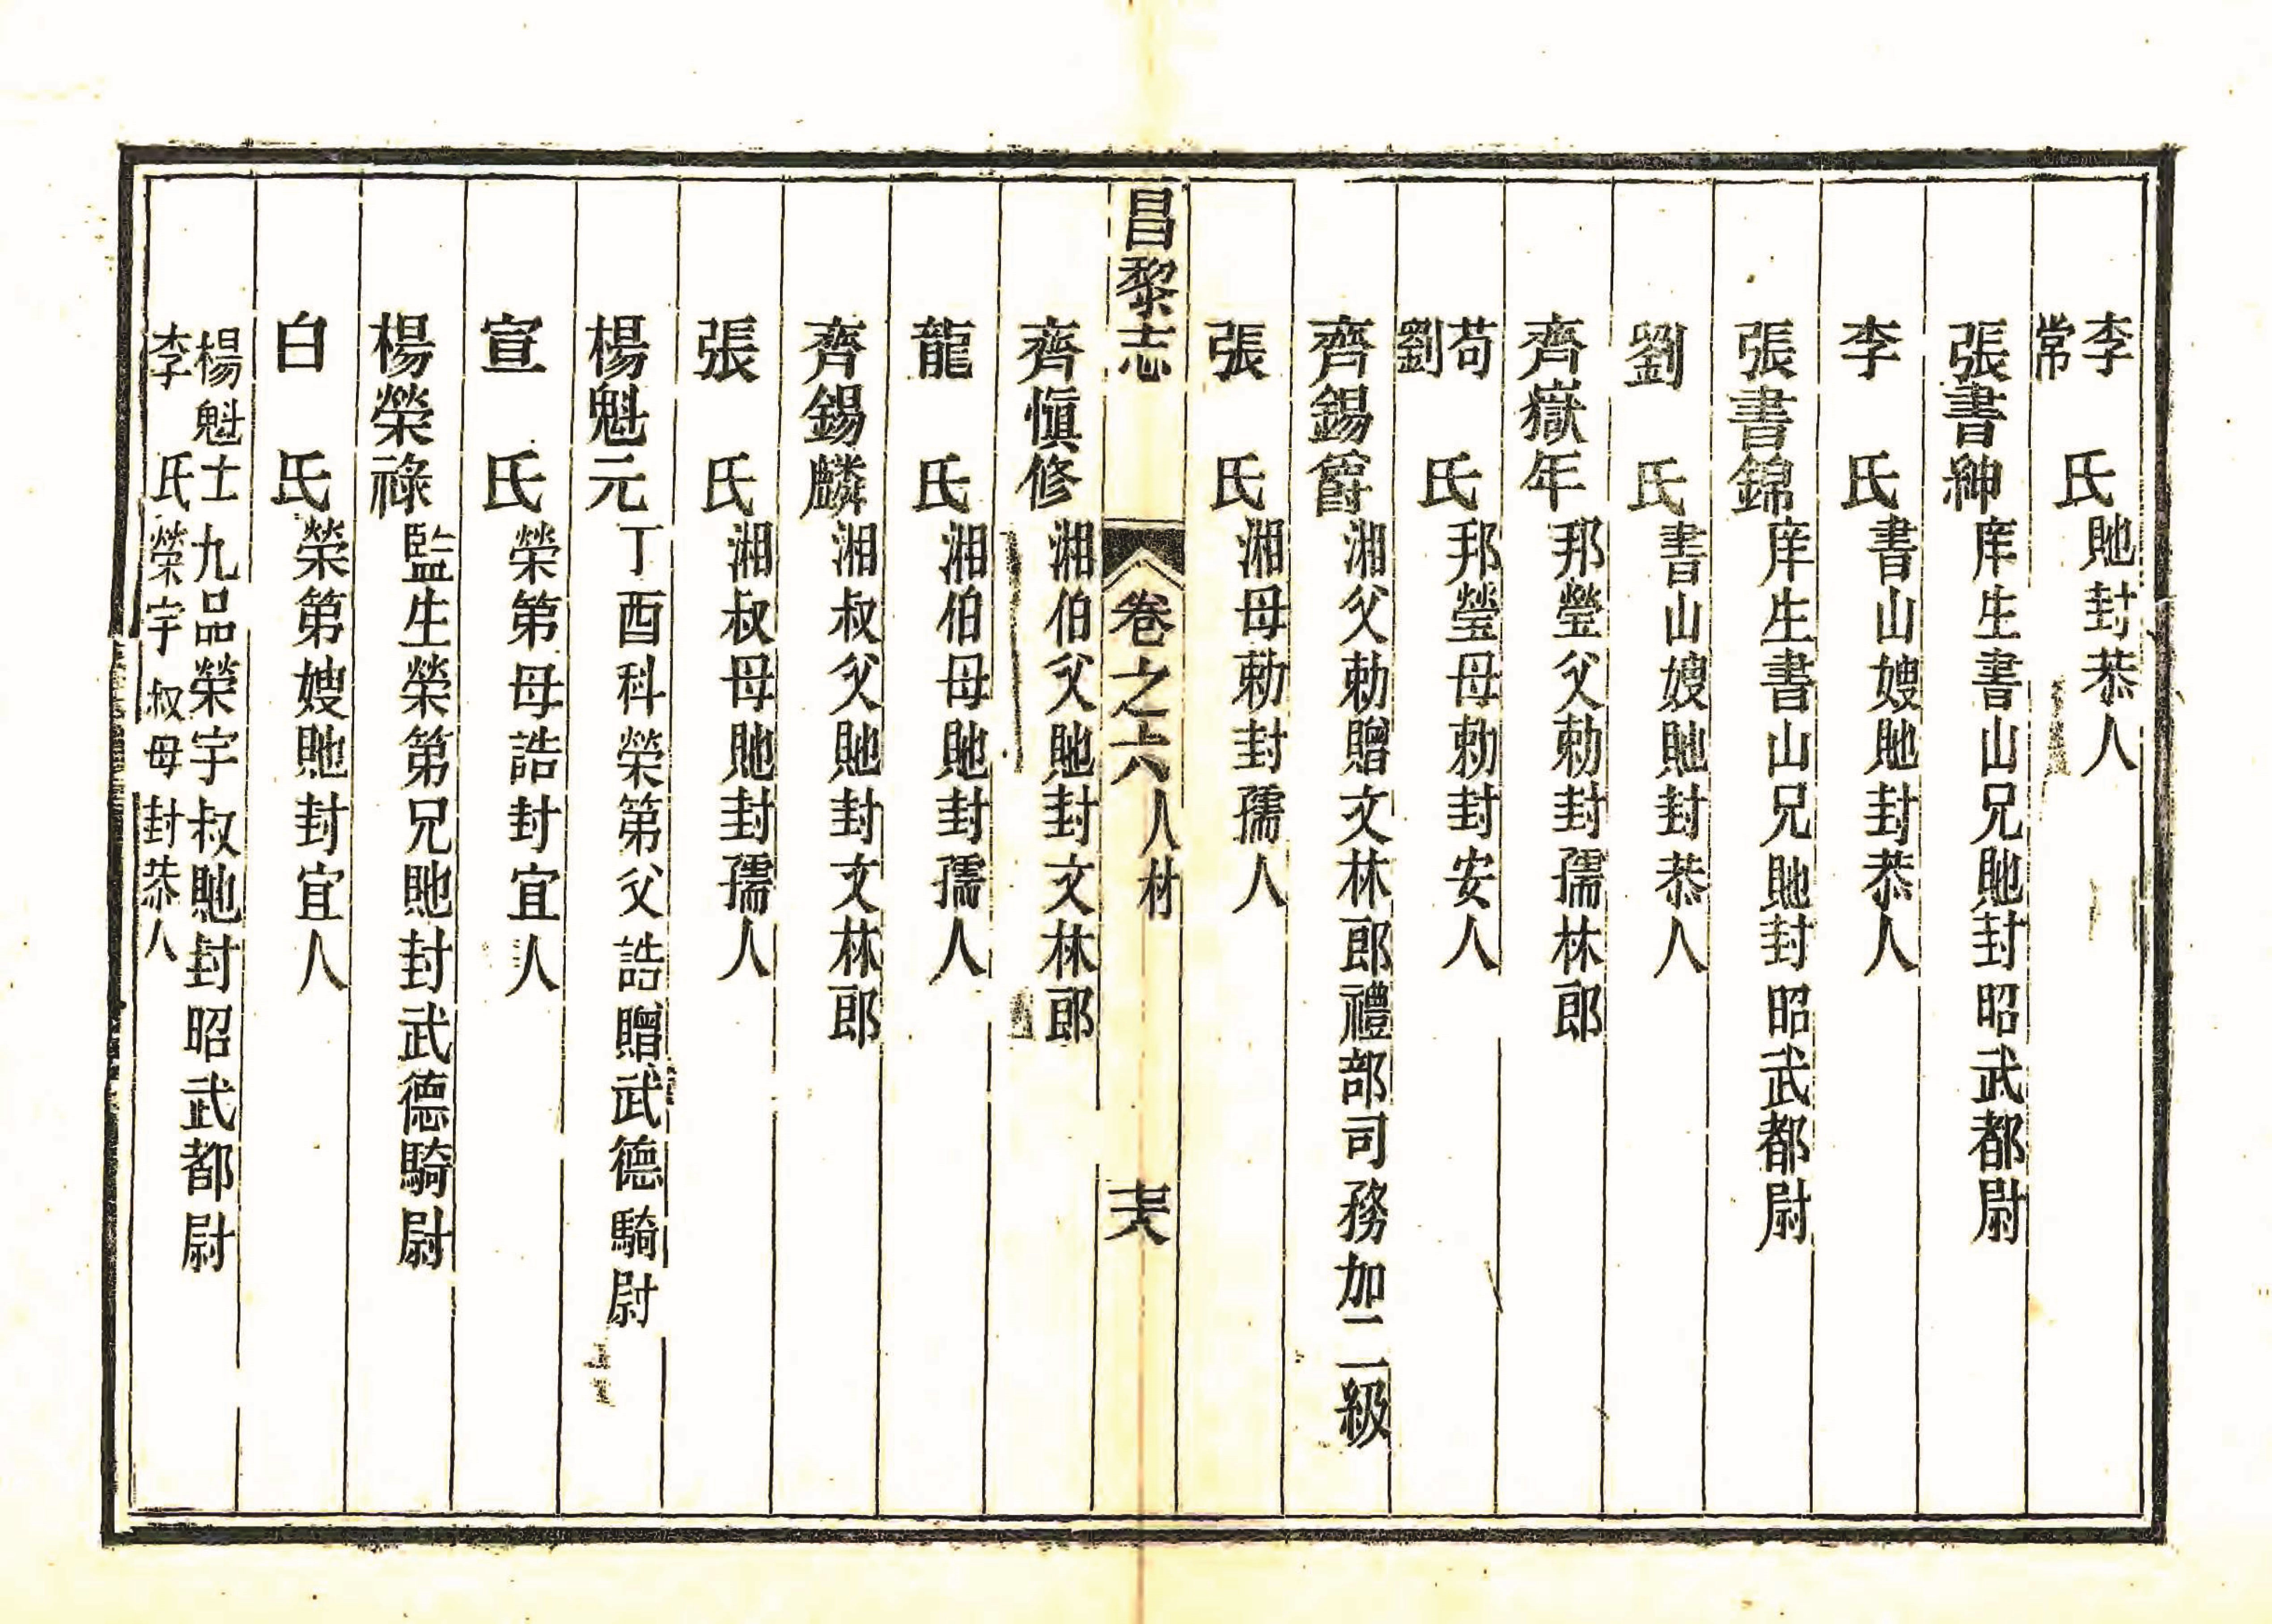 李常氏貤封恭人
張書紳庠生書山兄貤封昭武都尉
李氏書山嫂貤封恭人
張書錦庠生書山兄貤封昭武都尉
劉氏書山嫂貤封恭人
齊嶽年邦瑩父勅封儒林郎
苟劉氏邦瑩母勅封安人
齊錫爵湘父勅贈文林郎禮部司務加二級
張氏湘母勅封孺人
昌黎志卷之六人材
齊愼修湘伯父貤封文林郎
龍氏湘伯母貤封孺人
齊錫麟湘叔父貤封文林郎
張氏湘叔母貤封孺人
楊魁元丁酉科榮第父誥贈武德騎尉
宣氏榮第母誥封宜人
楊榮祿監生榮第兄貤封武德騎尉
白氏榮第嫂貤封宜人
楊魁士九品榮宇叔貤封昭武都尉
李氏榮宇叔母封恭人